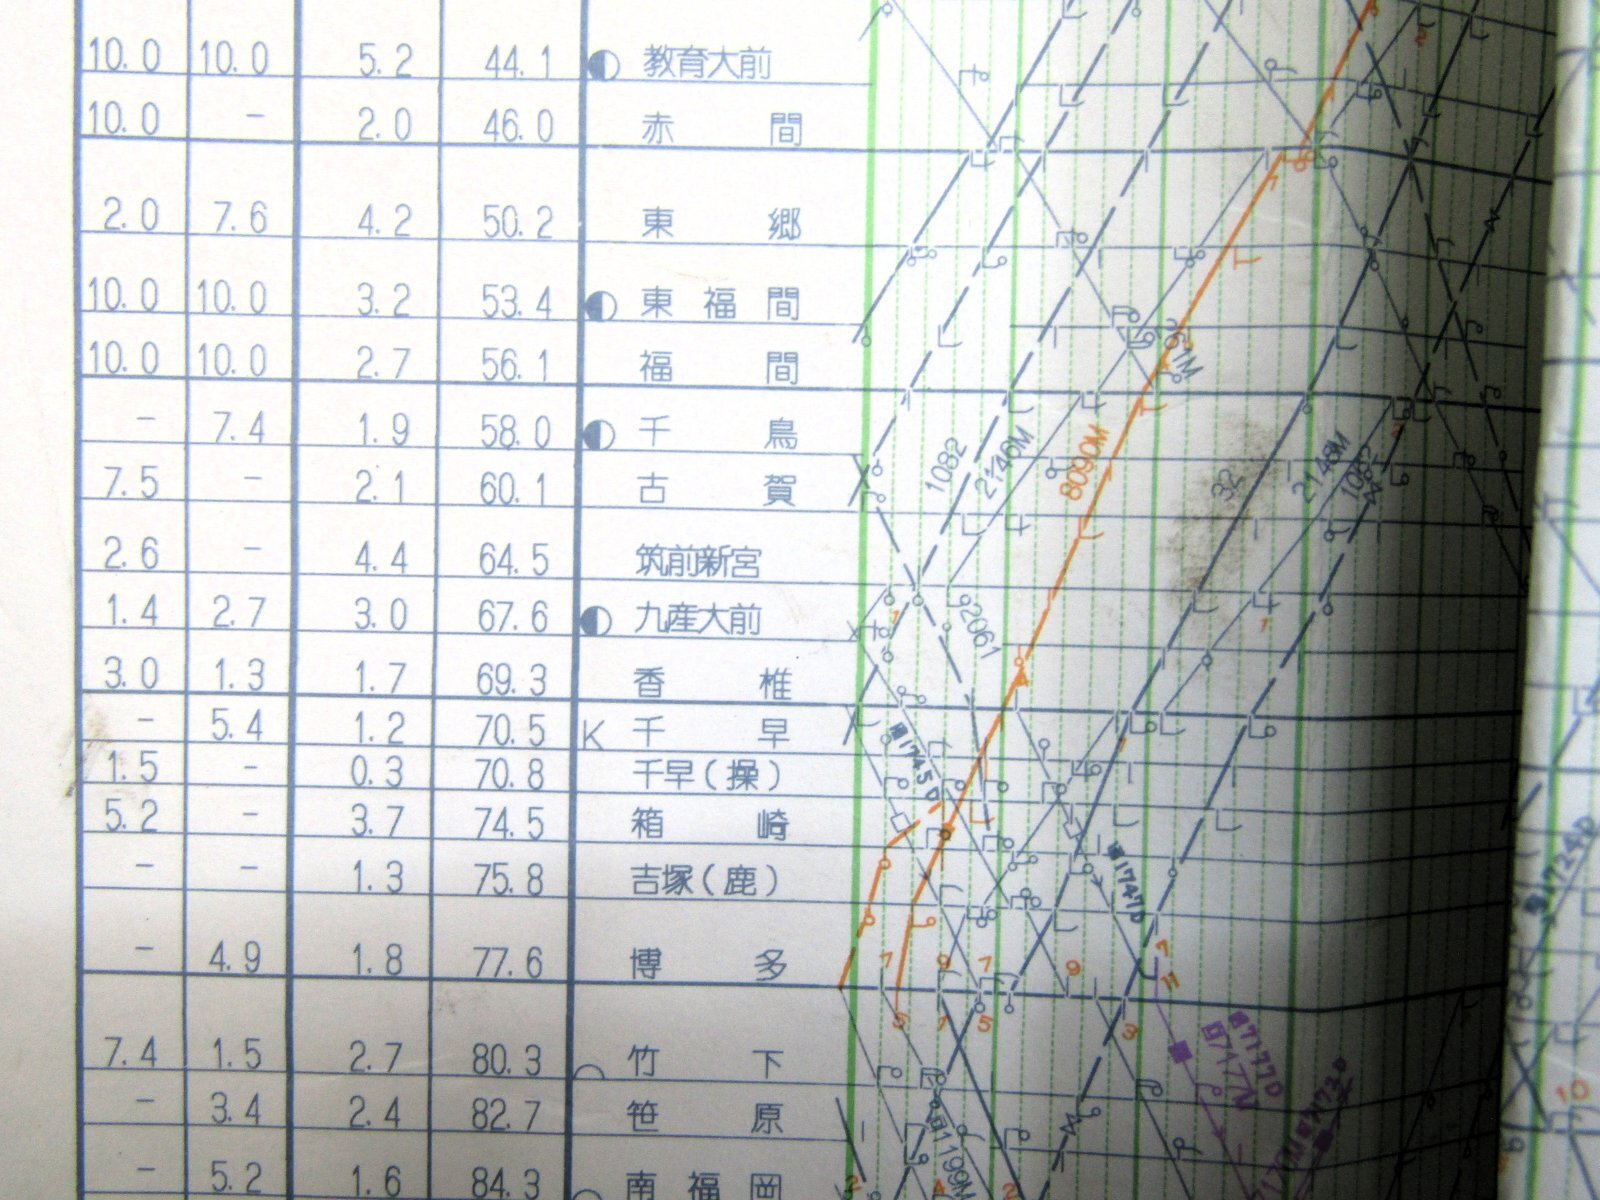 10.0 10.0 5.2 44.1 教育大前
10.0 - 2.0 46.0 赤間
2.0 7.6 4.2 50.2 東郷
10.0 10.0 3.2 53.4 東福間
10.0 10.0 2.7 56.1 福間
- 7.4 1.9 58.0 千鳥
7.5 - 2.1 60.1 古賀
2.6 - 4.4 64.5 筑前新宮
1.4 2.7 3.0 67.6 九産大前
3.0 1.3 1.7 69.3 香椎
- 5.4 1.2 70.5 K 千早
1.5 - 0.3 70.8 千早(操)
5.2 - 3.7 74.5 箱崎
- - 1.3 75.8 吉塚(鹿)
- 4.9 1.8 77.6 博多
7.4 1.5 2.7 80.3 竹下
- 3.4 2.4 82.7 笹原
- 5.2 1.6 84.3 南福岡
1082
2146M
8090M
32
2148M
2061
1745D
1747D
7 9 7 9
5
3
7177D
7173D
1199M
1724D
10
2